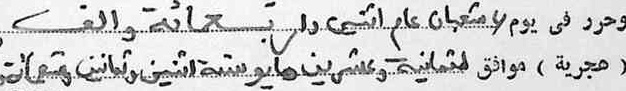 وحرر فى يوم شعبان عام اثنتى واربعمائة والف
( هجرية ) موافق لثمانية وعشرين مايو سنة اثنين وثمانين وتسعمائة